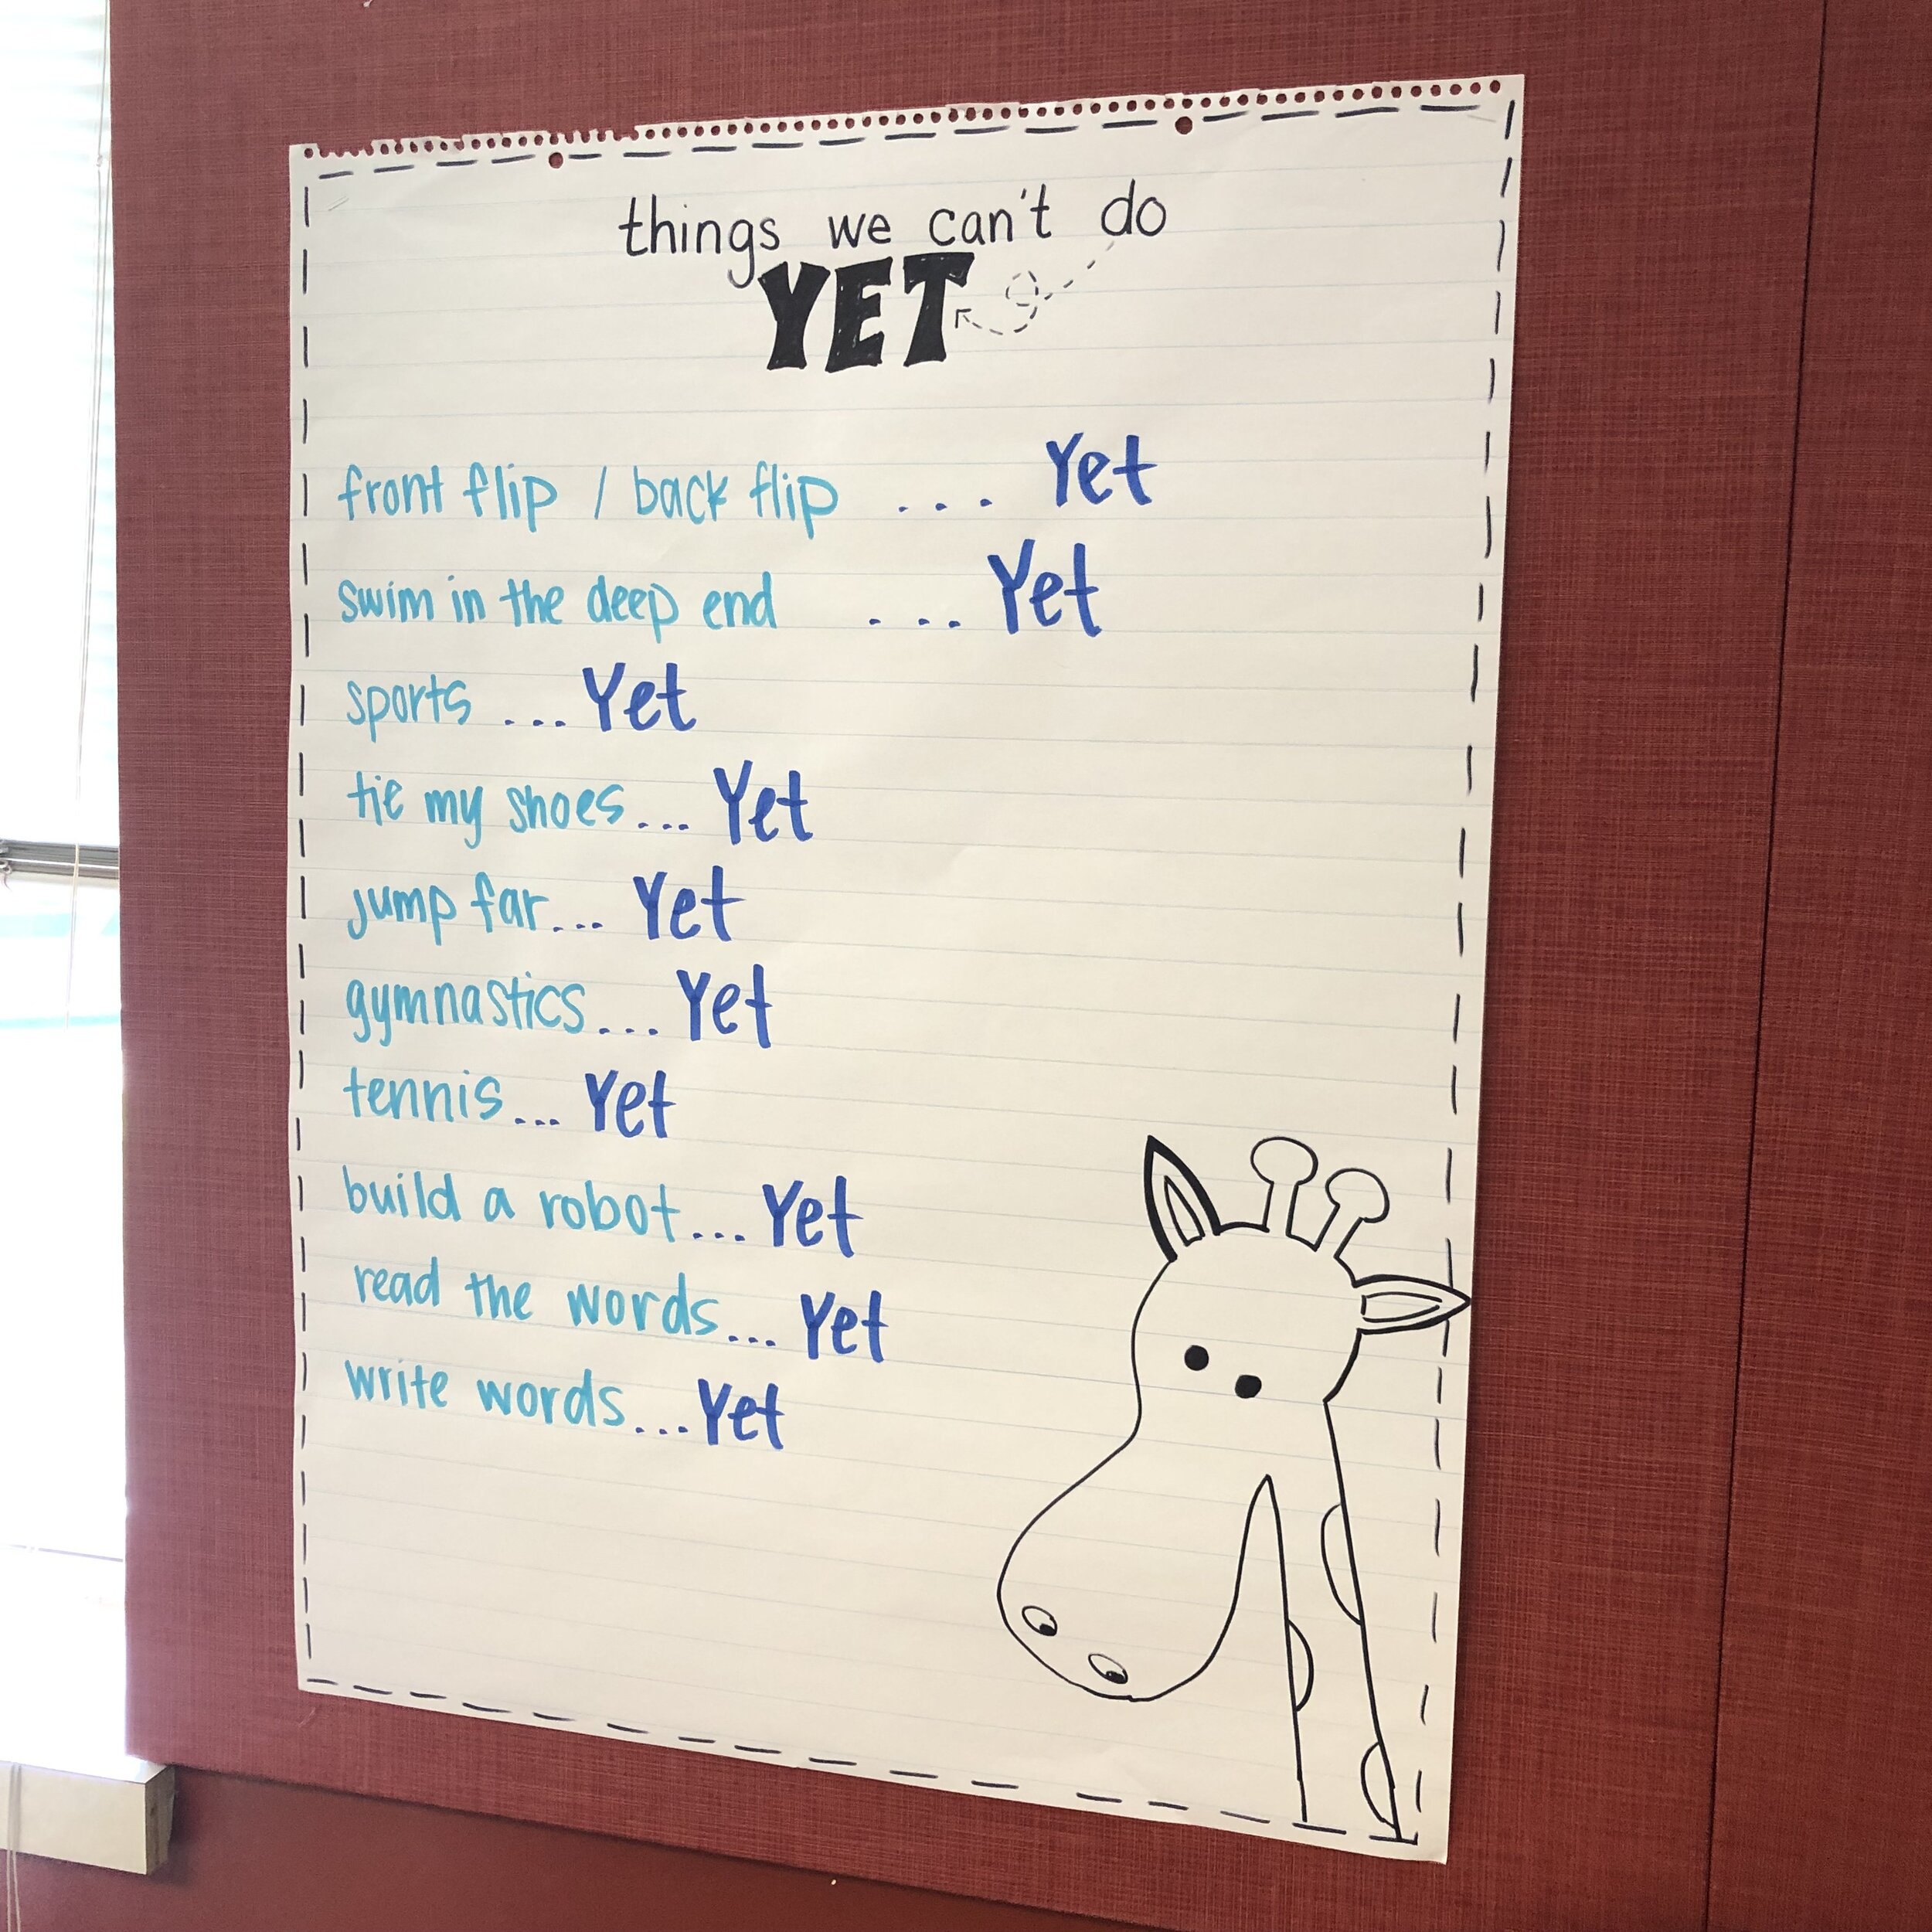 things we can't do
YET
front flip / back flip ... Yet
swim in the deep end ... Yet
sports ... Yet
tie my shoes... Yet
jump far... Yet
gymnastics... Yet
tennis... Yet
build a robot... Yet
read the words... Yet
write words... Yet